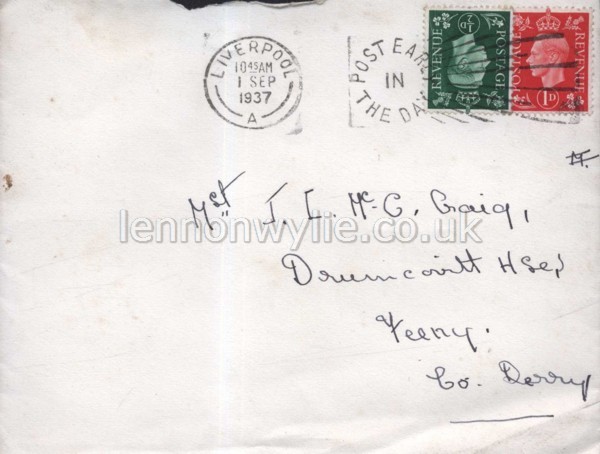 LIVERPOOL
10 45 AM
1 SEP
1937
A
POST EARLY
IN
THE DAY
REVENUE
½D
POSTAGE
REVENUE
1D
Mst J. L. Mc.C. Craig,
lennonwylie.co.uk
Drumcovitt Hse,
Feeny.
Co. Derry